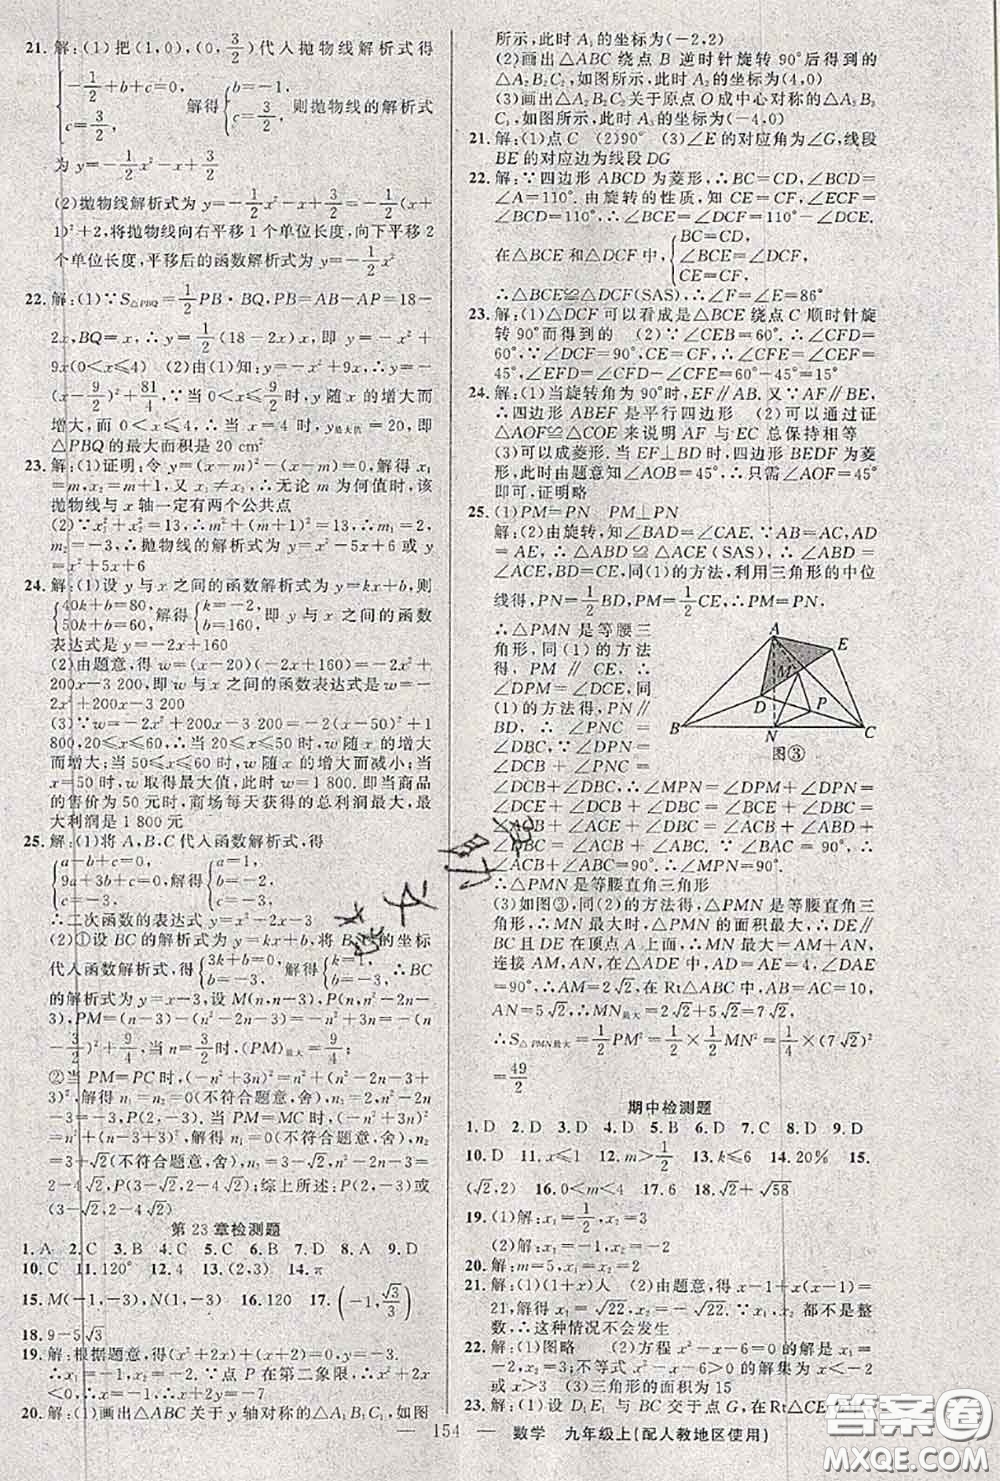 21. 解:(1)把(1,0),(0,3/2)代入抛物线解析式得
{-1/2+b+c=0, c=3/2 解得{b=-1, c=3/2 则抛物线的解析式
为 y=-1/2x²-x+3/2
(2)抛物线解析式为 y=-1/2x²-x+3/2=-1/2(x+
1)²+2,将抛物线向右平移 1 个单位长度,向下平移 2
个单位长度,平移后的函数解析式为 y=-1/2x²
22. 解:(1)∵S△PBQ=1/2PB·BQ,PB=AB-AP=18-
2x,BQ=x,∴y=1/2(18-2x)x,即 y=-x²+
9x(0<x≤4) (2)由(1)知:y=-x²+9x,∴y=
-(x-9/2)²+81/4,∵当 0<x≤9/2时,y 随 x 的增大而
增大,而 0<x≤4,∴当 x=4 时,y最大值=20,即
△PBQ 的最大面积是 20 cm²
23. 解:(1)证明:令 y=(x-m)²-(x-m)=0,解得 x₁
=m,x₂=m+1,又 x₁≠x₂,∴无论 m 为何值时,该
抛物线与 x 轴一定有两个公共点
(2)∵x₁²+x₂²=13,∴m²+(m+1)²=13,m₁=2,
m₂=-3,∴抛物线的解析式为 y=x²-5x+6 或 y=x²
+5x+6
24. 解:(1)设 y 与 x 之间的函数解析式为 y=kx+b,则
{40k+b=80, 50k+b=60, 解得{k=-2, b=160, 即 y 与 x 之间的函数
表达式是 y=-2x+160
(2)由题意,得 w=(x-20)(-2x+160)=-2x²+
200x-3 200,即 w 与 x 之间的函数表达式为 w=-2x²
+200x-3 200
(3)∵w=-2x²+200x-3 200=-2(x-50)²+1
800,20≤x≤60,∴当 20≤x≤50 时,w 随 x 的增大
而增大;当 50≤x≤60 时,w 随 x 的增大而减小;当 x
=50 时,w 取得最大值,此时 w=1 800,即当商品
的售价为 50 元时,商场每天获得的总利润最大,最
大利润是 1 800 元
25. 解:(1)将 A,B,C 代入函数解析式,得
{a-b+c=0, 9a+3b+c=0, c=-3, 解得{a=1, b=-2, c=-3,
∴二次函数的表达式为 y=x²-2x-3
(2)①设 BC 的解析式为 y=kx+b,将 B,C 的坐标
代入函数解析式,得{3k+b=0, b=-3, 解得{k=1, b=-3, ∴BC
的解析式为 y=x-3,设 M(n,n-3),P(n,n²-2n-
3),PM=(n-3)-(n²-2n-3)=-n²+3n=-(n-
3/2)²+9/4,当 n=3/2时,(PM)最大=9/4;
②当 PM=PC 时,(-n²+3n)²=n²+(n²-2n-3+
3)²,解得 n₁=0(不符合题意,舍去),n₂=2,n²-2n-3
=-3,P(2,-3);当 PM=MC 时,(-n²+3n)²=n²+
(n-3+3)²,解得 n₁=0(不符合题意,舍去),n₂
=3-√2,n₃=3+√2(不符合题意,舍去),n²-2n-3
=2-4√2,P(3-√2,2-4√2);综上所述:P(2,-3)
或(3-√2,2-4√2)
第 23 章检测题
1. A 2. C 3. B 4. A 5. C 6. B 7. D 8. A 9. D
10. C 11. 120° 12. 4 13. (2,3) 14. π
15. M(-1,-3),N(1,-3) 16. 120 17. (-1,√3/3)
18. 9-5√3
19. 解:根据题意,得(x²+2x)+(x+2)=0,y=-3.
∴x₁=-1,x₂=-2.∵点 P 在第二象限,∴x²+2x
<0,∴x=-1,∴x+2y=-7
20. 解:(1)画出△ABC 关于 y 轴对称的△A₁B₁C₁,如图
所示,此时 A₁ 的坐标为(-2,2)
(2)画出△ABC 绕点 B 逆时针旋转 90°后得到的
△A₂B₂C₂,如图所示,此时 A₂ 的坐标为(4,0)
(3)画出△A₂B₂C₂ 关于原点 O 成中心对称的△A₃B₃
C₃,如图所示,此时 A₃ 的坐标为(-4,0)
21. 解:(1)点 C (2)90° (3)∠E 的对应角为∠G,线段
BE 的对应边为线段 DG
22. 解:∵四边形 ABCD 为菱形,∴BC=CD,∠BCD=
∠A=110°.由旋转的性质,知 CE=CF,∠ECF=
∠BCD=110°,∴∠BCE=∠DCF=110°-∠DCE.
在△BCE 和△DCF 中,{BC=CD, ∠BCE=∠DCF, CE=CF,
∴△BCE≌△DCF(SAS),∴∠F=∠E=86°
23. 解:(1)△DCF 可以看成是△BCE 绕点 C 顺时针旋
转 90°而得到的 (2)∵∠CEB=60°,∴∠CFD=
60°,∵∠DCF=90°,CE=CF,∴∠CFE=∠CEF=
45°,∴∠EFD=∠CFD-∠CFE=60°-45°=15°
24. 解:(1)当旋转角为 90°时,EF∥AB.又∵AF∥BE,
∴四边形 ABEF 是平行四边形 (2)可以通过证
△AOF≌△COE 来说明 AF 与 EC 总保持相等
(3)可以成菱形.当 EF⊥BD 时,四边形 BEDF 为菱
形,此时由题意可知∠AOB=45°,∴只需∠AOF=45°
即可,证明略
25. (1)PM=PN PM⊥PN
解:(2)由旋转,知∠BAD=∠CAE.∵AB=AC,AD
=AE,∴△ABD≌△ACE(SAS),∴∠ABD=
∠ACE,BD=CE,同(1)的方法,利用三角形的中位
线得,PN=1/2BD,PM=1/2CE,∴PM=PN,
∴△PMN 是等腰三
角形,同(1)的方法
得,PM∥CE,∴
∠DPM=∠DCE,同
(1)的方法得,PN∥
BD,∴∠PNC=
∠DBC.∵∠DPN=
∠DCB+∠PNC=
∠DCB+∠DBC,∴∠MPN=∠DPM+∠DPN=
∠DCE+∠DCB+∠DBC=∠BCE+∠DBC=
∠ACB+∠ACE+∠DBC=∠ACB+∠ABD+
∠DBC=∠ACB+∠ABC.∵∠BAC=90°,∴
∠ACB+∠ABC=90°,∴∠MPN=90°.
∴△PMN 是等腰直角三角形
(3)如图③,同(2)的方法得,△PMN 是等腰直角三角
形,∴MN 最大时,△PMN 的面积最大,∴DE∥
BC 且 DE 在顶点 A 上面,∴MN最大=AM+AN,
连接 AM,AN,在△ADE 中,AD=AE=4,∠DAE
=90°,∴AM=2√2,在 Rt△ABC 中,AB=AC=10,
AN=5√2,∴MN最大=2√2+5√2=7√2,
∴S△PMN最大=1/2PM²=1/2×1/2MN²=1/4×(7√2)²=
49/2
A
E
M
D
P
B
N
C
图③
期中检测题
1. D 2. D 3. C 4. D 5. B 6. D 7. C 8. D 9. D
10. D 11. x≤1 12. m>1/2 13. k≤6 14. 20% 15.
(√2,2) 16. 0<m<4 17. 6 18. √2+√58
19. (1)解:x₁=1/2,x₂=3
(2)解:x₁=-1,x₂=-2
20. 解:m=5,x₂=1
21. 解:(1)(1+x)人 (2)由题意,得 x-1+x(x-1)=
21,解得 x₁=√22,x₂=-√22.∵x₁,x₂ 都不是整
数,∴这种情况不会发生
22. 解:(1)图略 (2)方程 x²-x-6=0 的解为 x₁=
-2,x₂=3;不等式 x²-x-6>0 的解集为 x<-2
或 x>3 (3)三角形的面积为 15
23. 解:(1)设 D₁E₁ 与 BC 交于点 G,在 Rt△CE
— 154 — 数学 九年级上(配人教地区使用)
答案卷